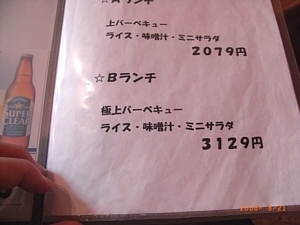 ☆Aランチ
上バーベキュー
ライス・味噌汁・ミニサラダ
2079円
☆Bランチ
極上バーベキュー
ライス・味噌汁・ミニサラダ
3129円
SUPER
CLEAR